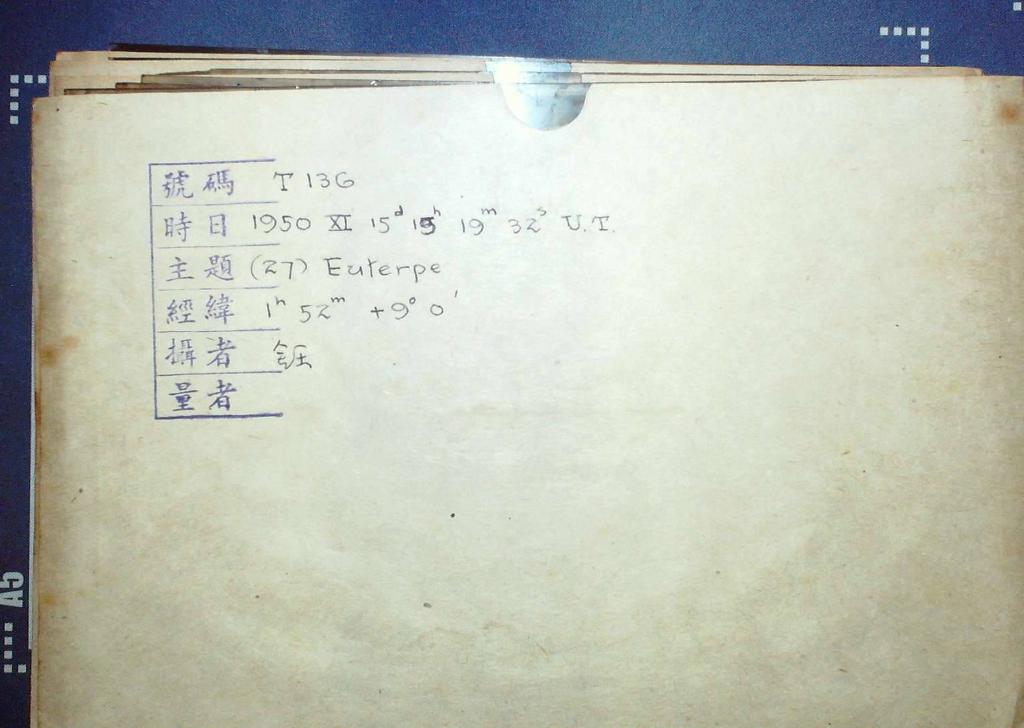 號碼 T 136
時日 1950 XI 15ᵈ 15ʰ 19ᵐ 32ˢ U.T.
主題 (27) Euterpe
經緯 1ʰ 52ᵐ +9° 0'
攝者 鈺
量者
A5